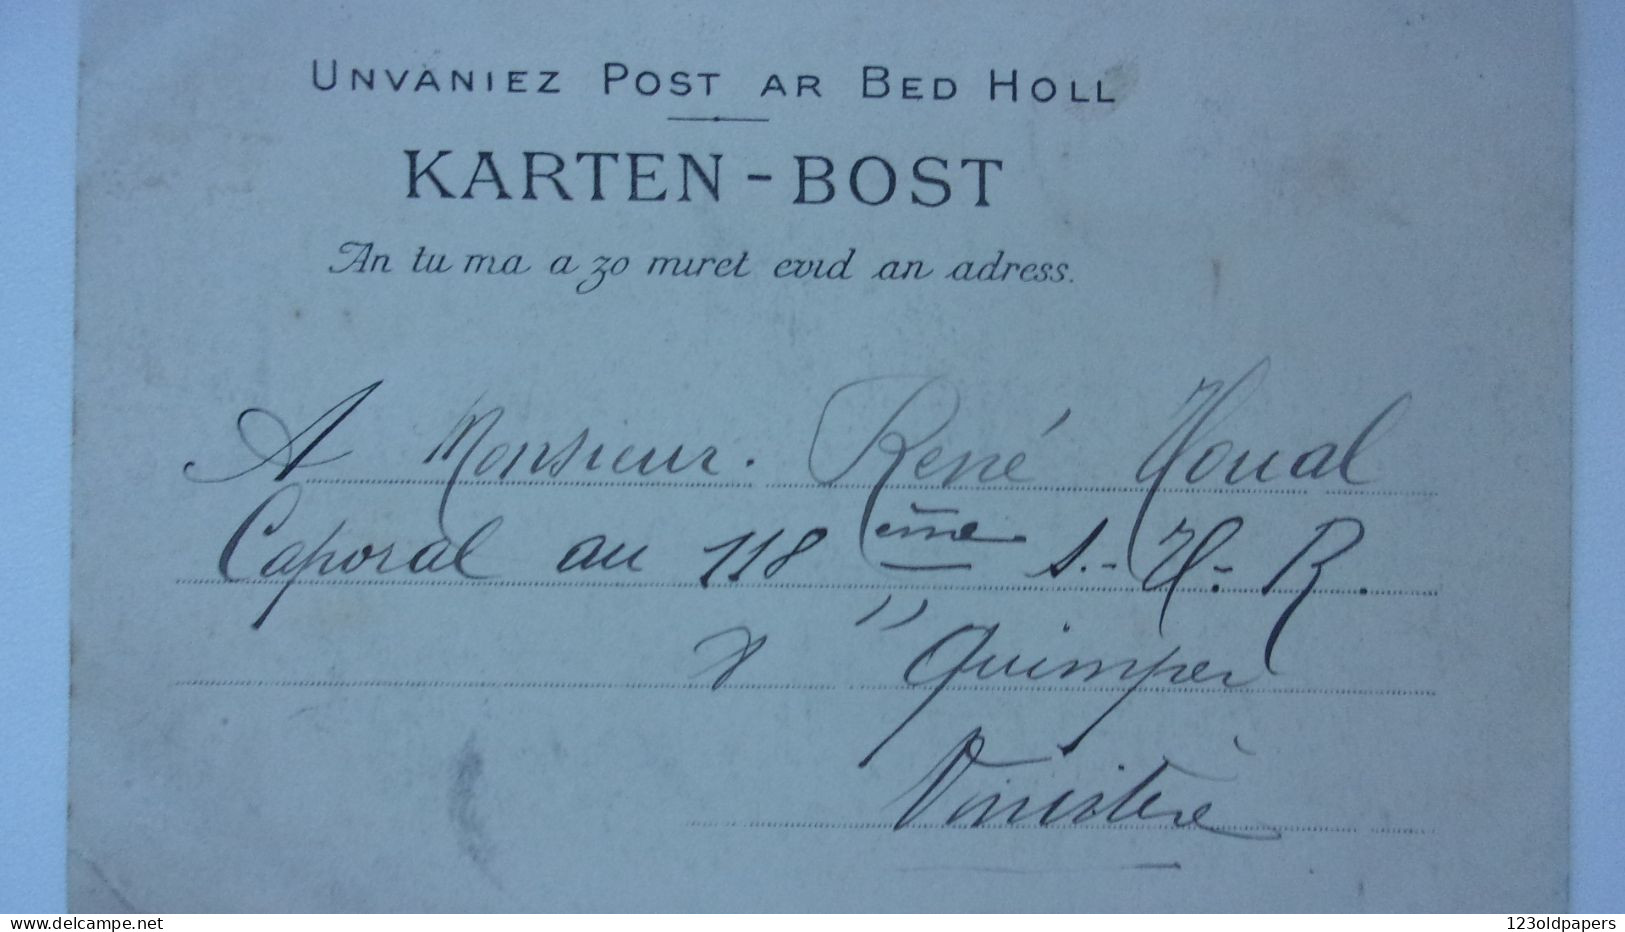 UNVANIEZ POST AR BED HOLL
KARTEN-BOST
An tu ma a zo miret evid an adress.
A Monsieur. René Houal
Caporal au 118 ème S.-H.-R.
Quimper
Finistère
delcampe.net
123oldpapers